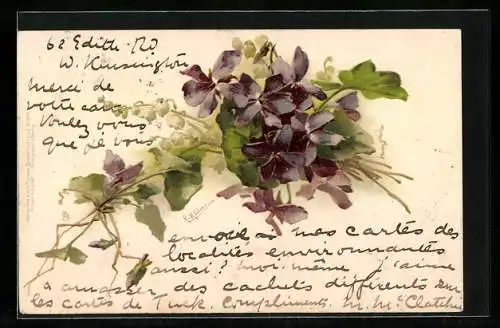 62 Edith Rd
W. Kensington
merci de
votre carte
Voulez vous
que je vous
envoie mes cartes des
localités environnantes
aussi? moi même j'aime
a amasser des cachets différents sur
les cartes de Tuck. Compliments. M. Mc Clatchie